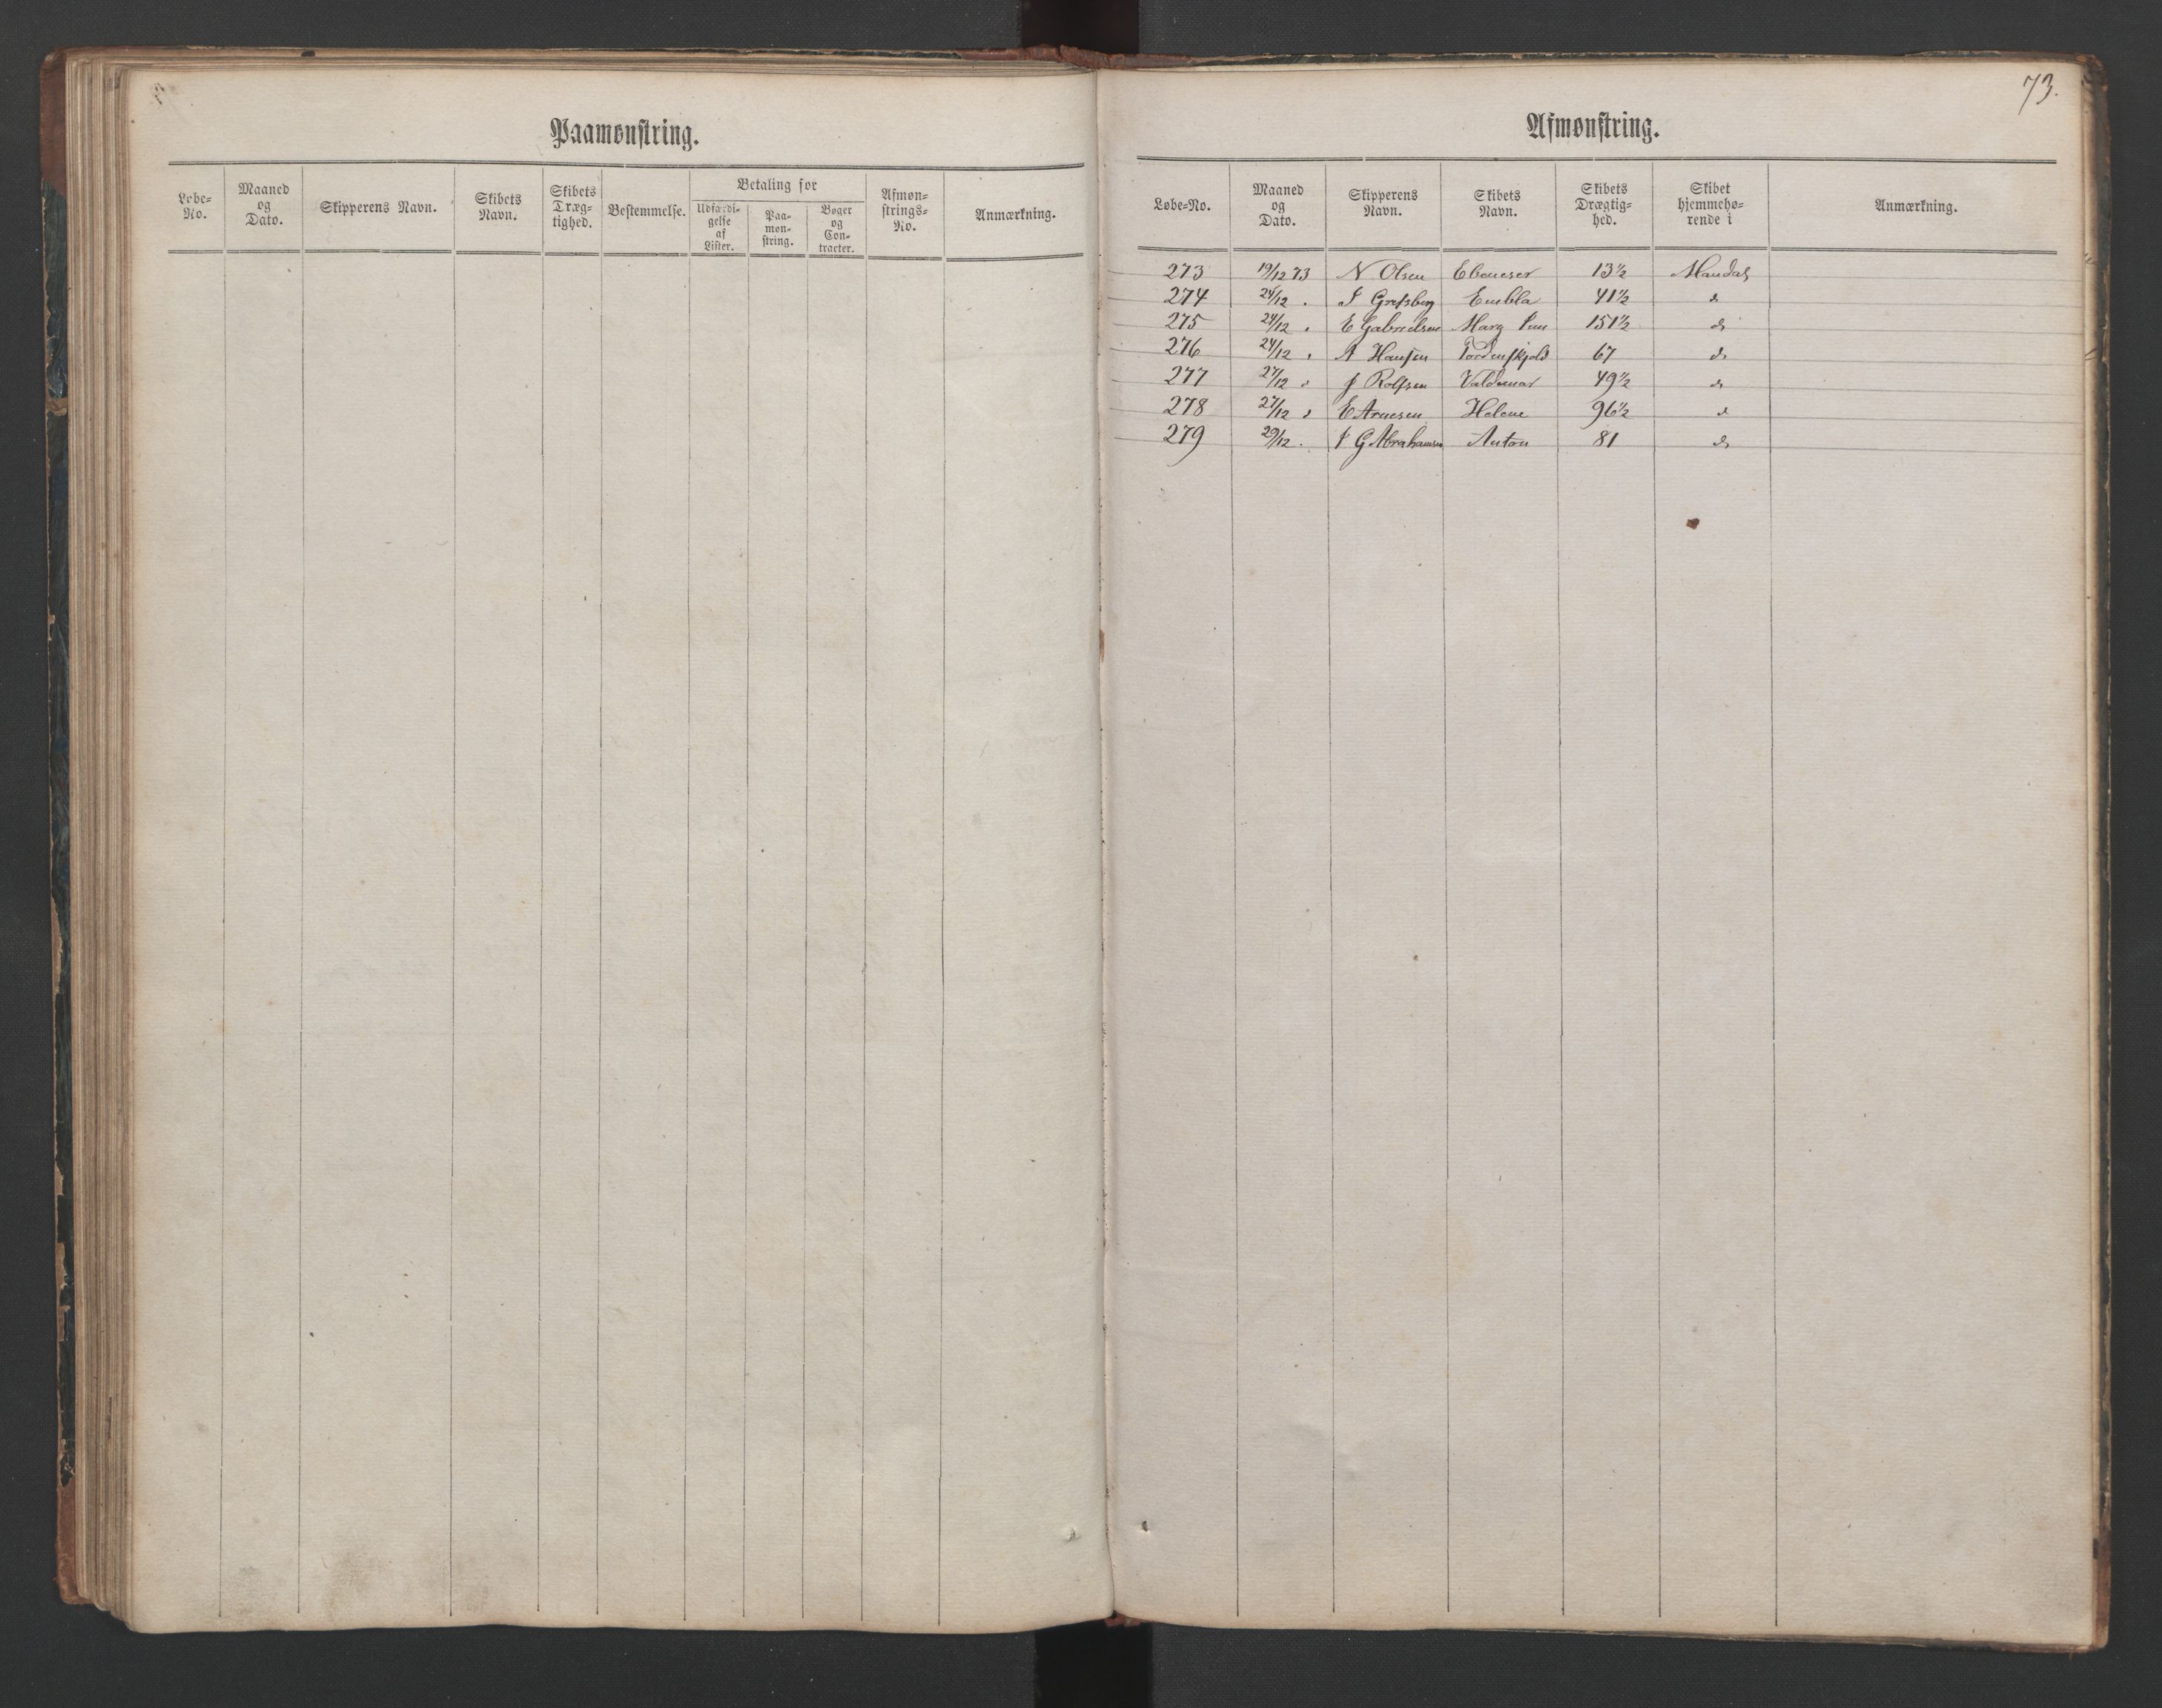 Paamønstring.
Løbe-No. | Maaned og Dato. | Skipperens Navn. | Skibets Navn. | Skibets Dræg-tighed. | Bestemmelse. | Betaling for | Udfærdi-gelse af Lister. | Paa-møn-string. | Bøger og Con-tracter. | Afmøn-strings-No. | Anmærkning.
73.
Afmønstring.
Løbe-No. | Maaned og Dato. | Skipperens Navn. | Skibets Navn. | Skibets Drægtig-hed. | Skibet hjemmehø-rende i | Anmærkning.
273 19/12 73 N Olsen Ebeneser 13½ Mandal
274 24/12 " Embla 41½ do
275 24/12 " E Gabrielsen 151½ do
276 24/12 " A Hansen Tordenskjold 67 do
277 27/12 " J Rolfsen Valdemar 49½ do
278 27/12 " E Arnesen Helene 96½ do
279 29/12 " J G Abrahamsen Anton 81 do